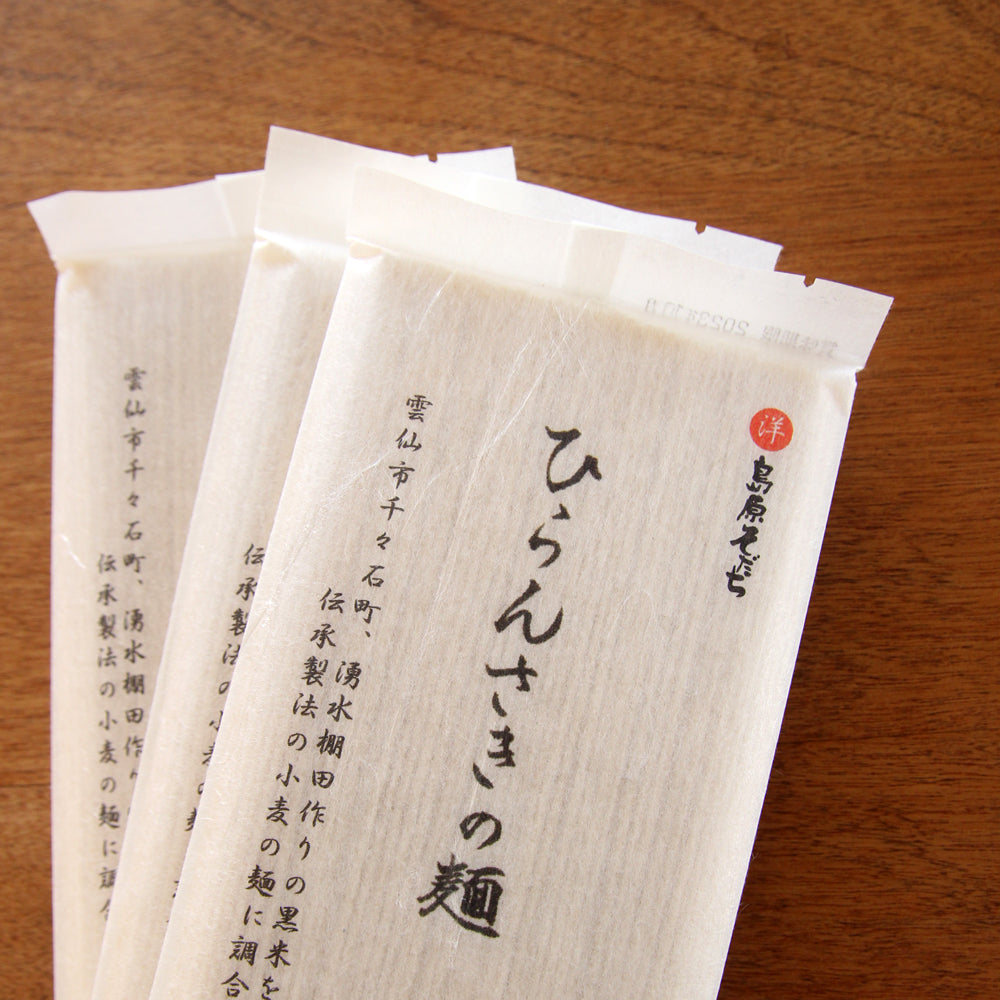 洋
島原そだち
ひらんさきの麺
雲仙市千々石町、湧水棚田作りの黒米を
伝承製法の小麦の麺に調合
賞味期限 2023年10月
伝承製法の小麦の麺
雲仙市千々石町、湧水棚田作り
伝承製法の小麦の麺に調合